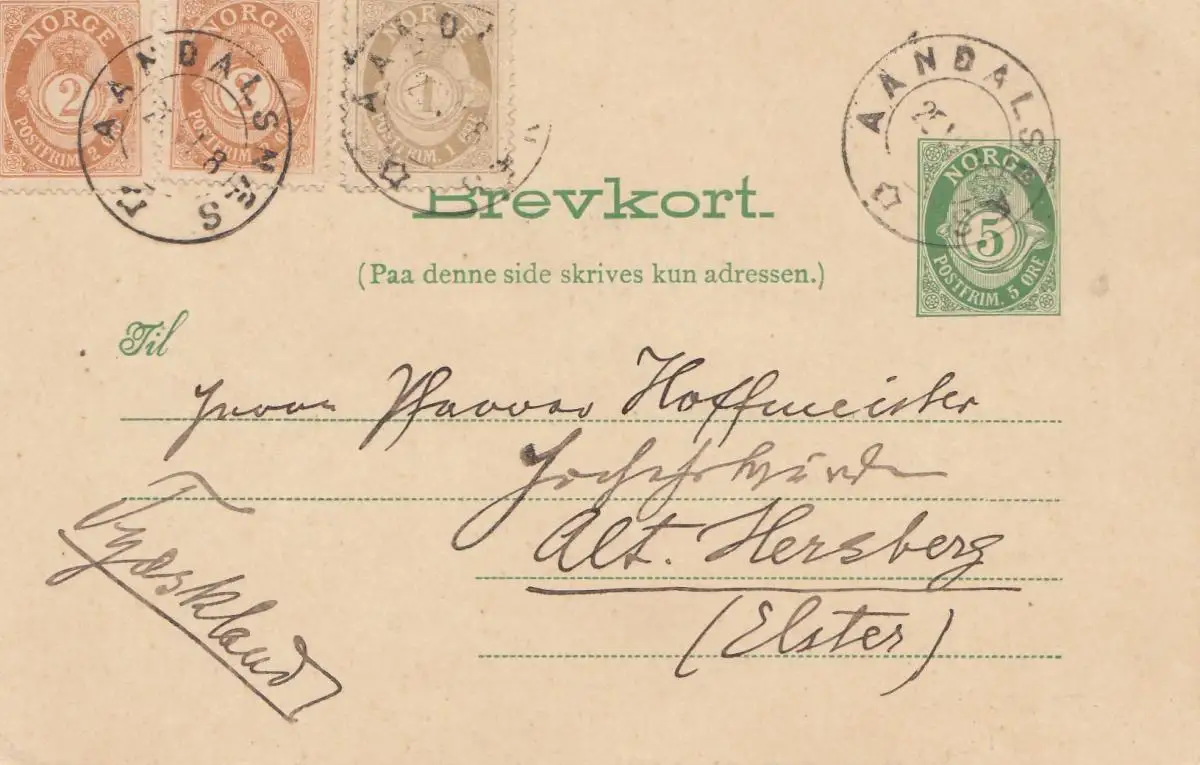 NORGE 2 POSTFRIM. 2 ØRE
NORGE 2 POSTFRIM. 2
NORGE 1 POSTFRIM. 1 ØRE
AANDALSNES
AAND
AANDALSNES
NORGE
5
POSTFRIM. 5 ØRE
Brevkort.
(Paa denne side skrives kun adressen.)
Til
Herrn Pfarrer Hoffmeister
Hochehrwürden
Alt. Hersberg
(Elster)
Tyskland